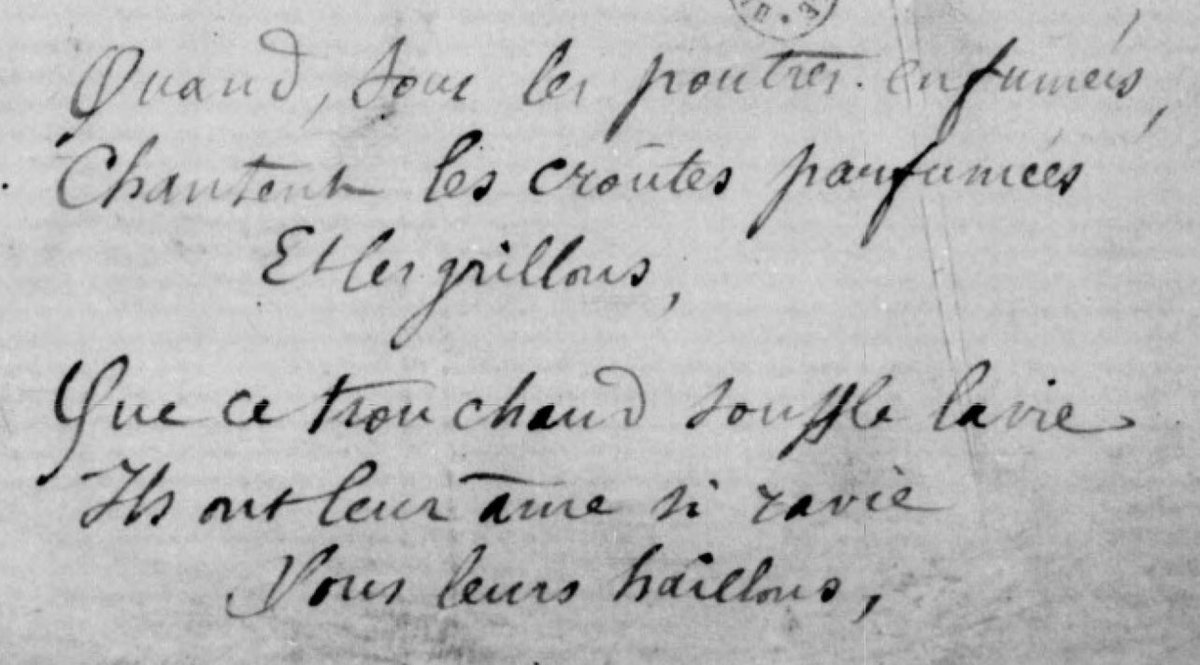 Quand, sous les poutres enfumées,
Chantent les croûtes parfumées
Et les grillons,
Que ce trou chaud souffle la vie
Ils ont leur âme si ravie
Sous leurs haillons,